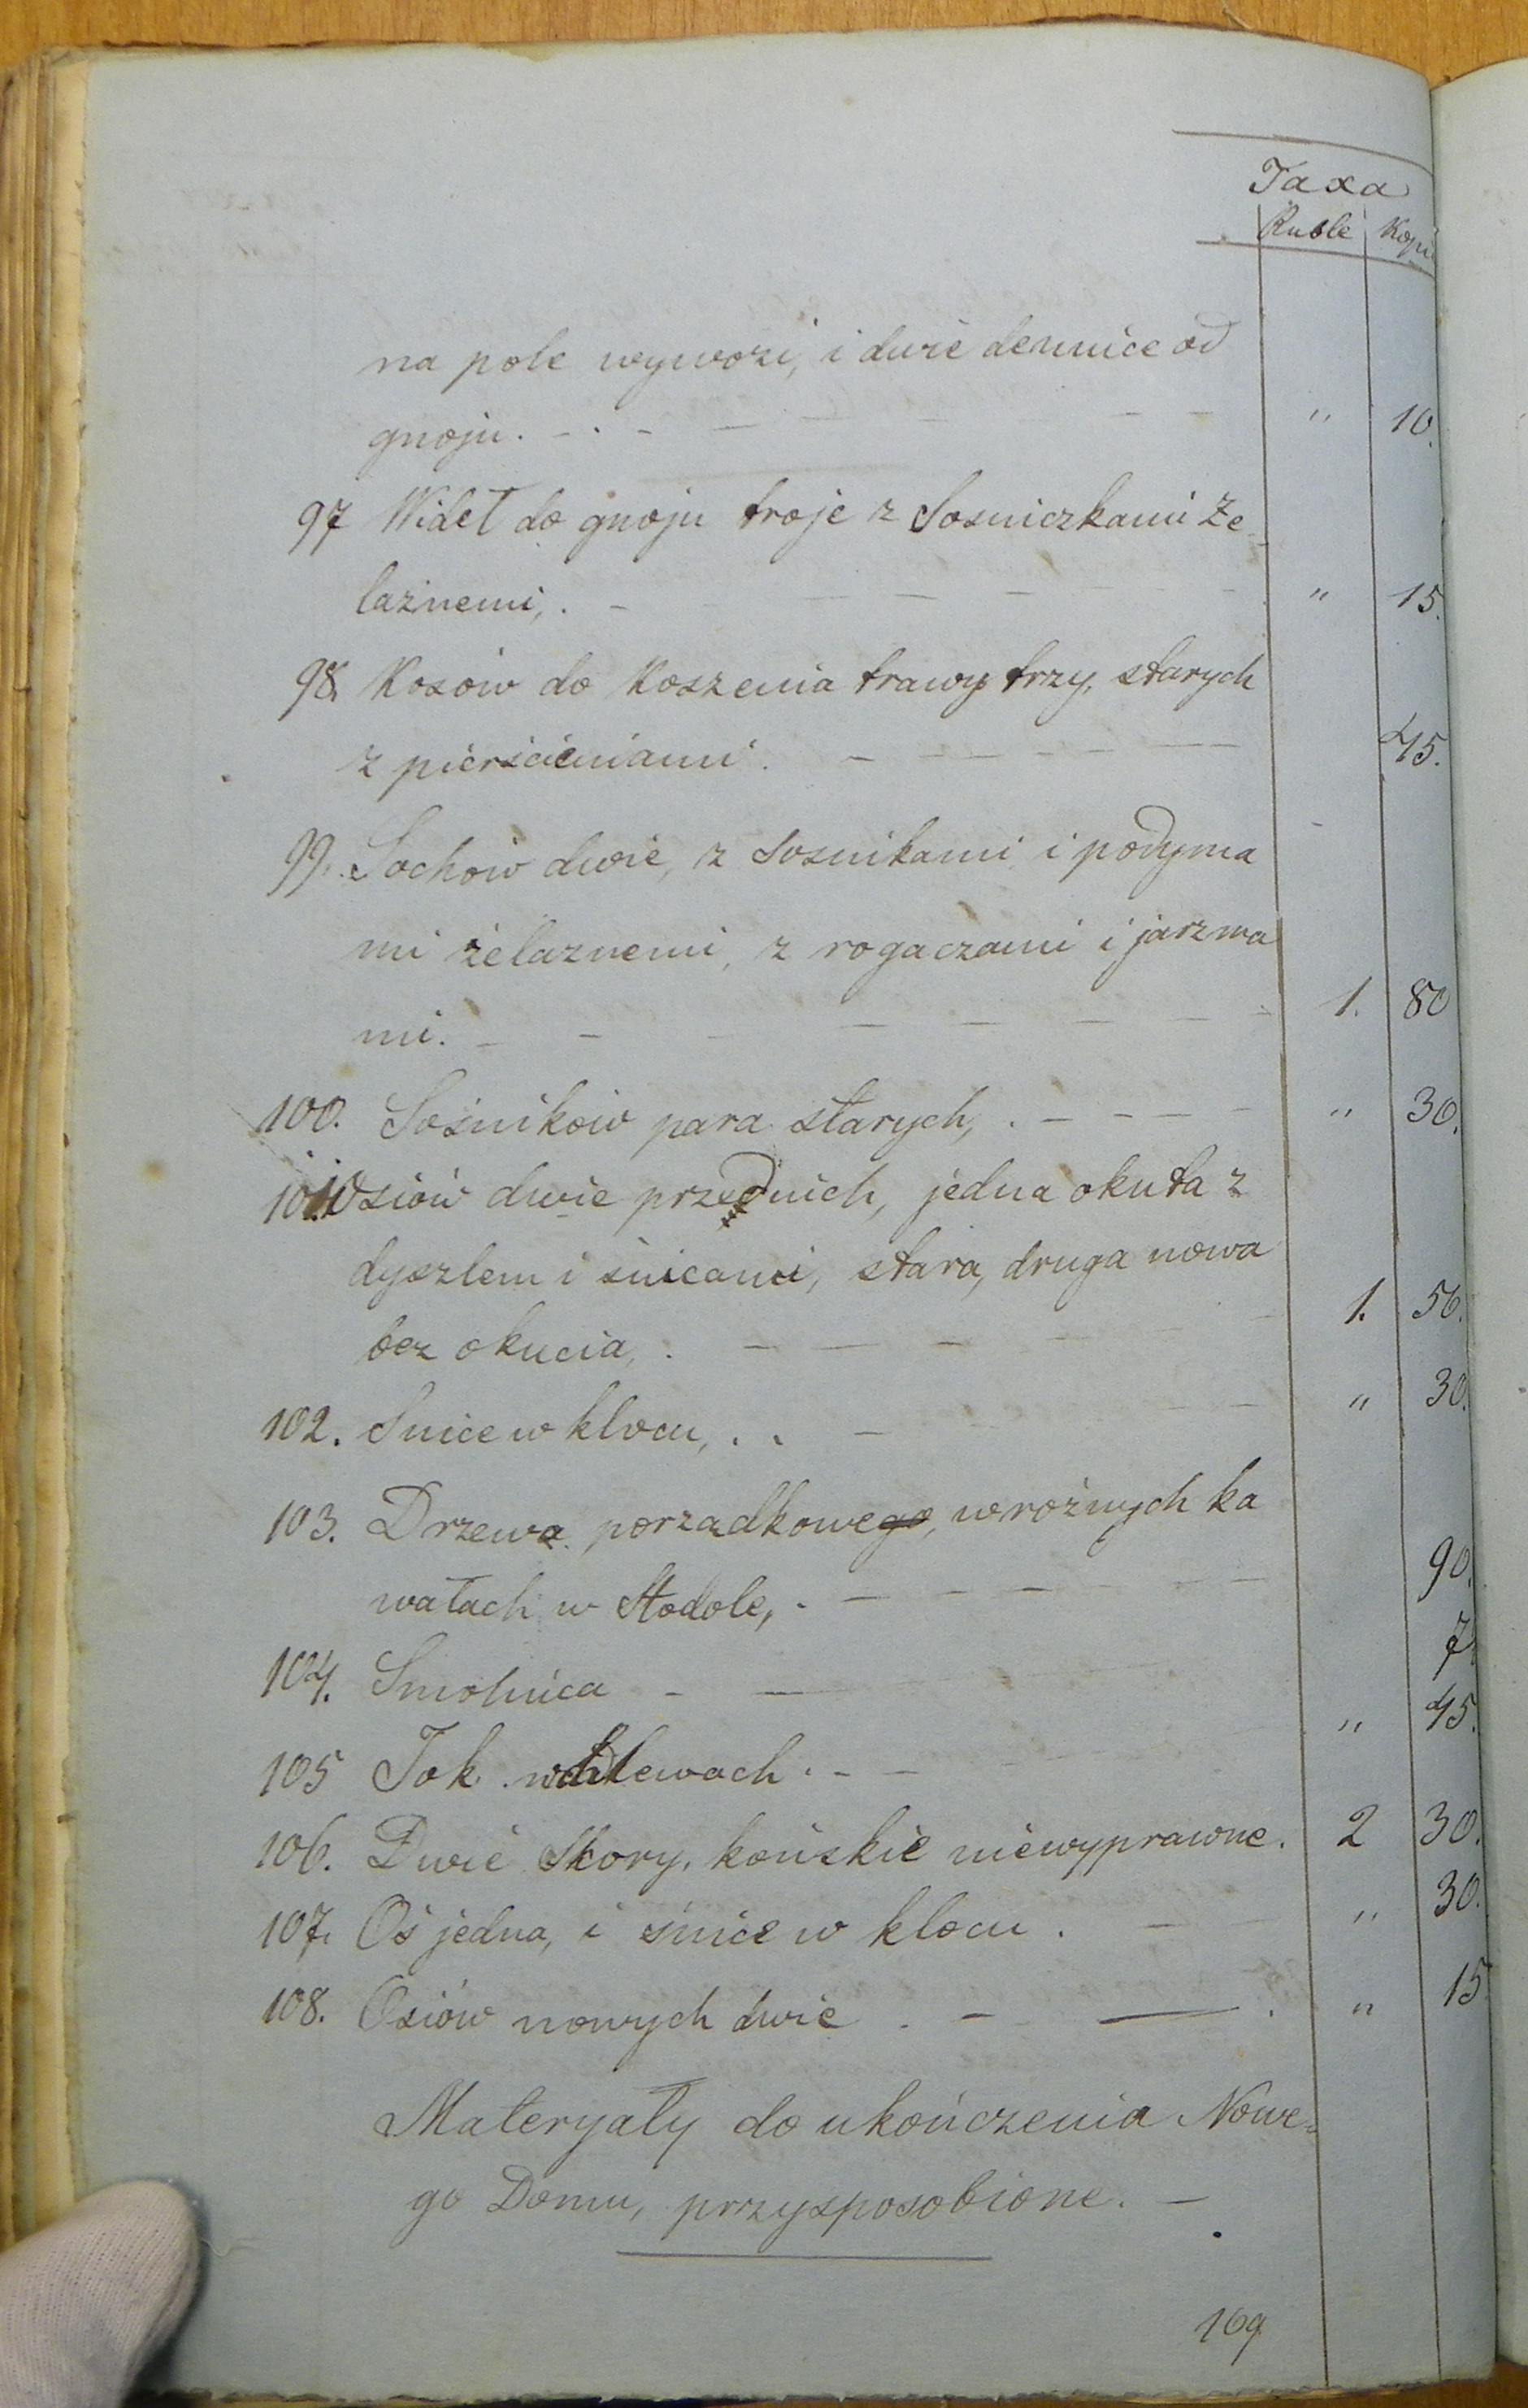 Taxa
Ruble Kopi
na pole wywozi, i dwie dennice od
gnoju. - . - - - - - - " 10.
97 Wideł do gnoju troje z Sosniczkami Że
laznemi, . - - - - - - " 15.
98. Kosów do Koszenia trawy trzy, starych
z pierścieniami. - - - - - 45.
99. Sochów dwie, z Sosnikami i podyma
mi żelaznemi, z rogaczami i jarzma
mi. - - - - - - - 1. 80
100. Sośników para starych, . - - - - " 30.
101. Osiów dwie przednich, jedna okuta z
dyszlem i śnicami, stara, druga nowa
bez okucia, . - - - - 1. 50.
102. Snice w klocu, . . - - - " 30.
103. Drzewa porządkowego, w rożnych ka
wałach w Stodole, . - - - - - 90.
104. Smolnica - - 7
105 Tok w chlewach . - - " 45.
106. Dwie Skory, końskie niewyprawne. 2 30.
107. Oś jedna, i śnice w klocu . - - " 30.
108. Osiów nowych dwie . - - . " 15
Materyały do ukończenia Nowe-
go Domu, przysposobione. -
109